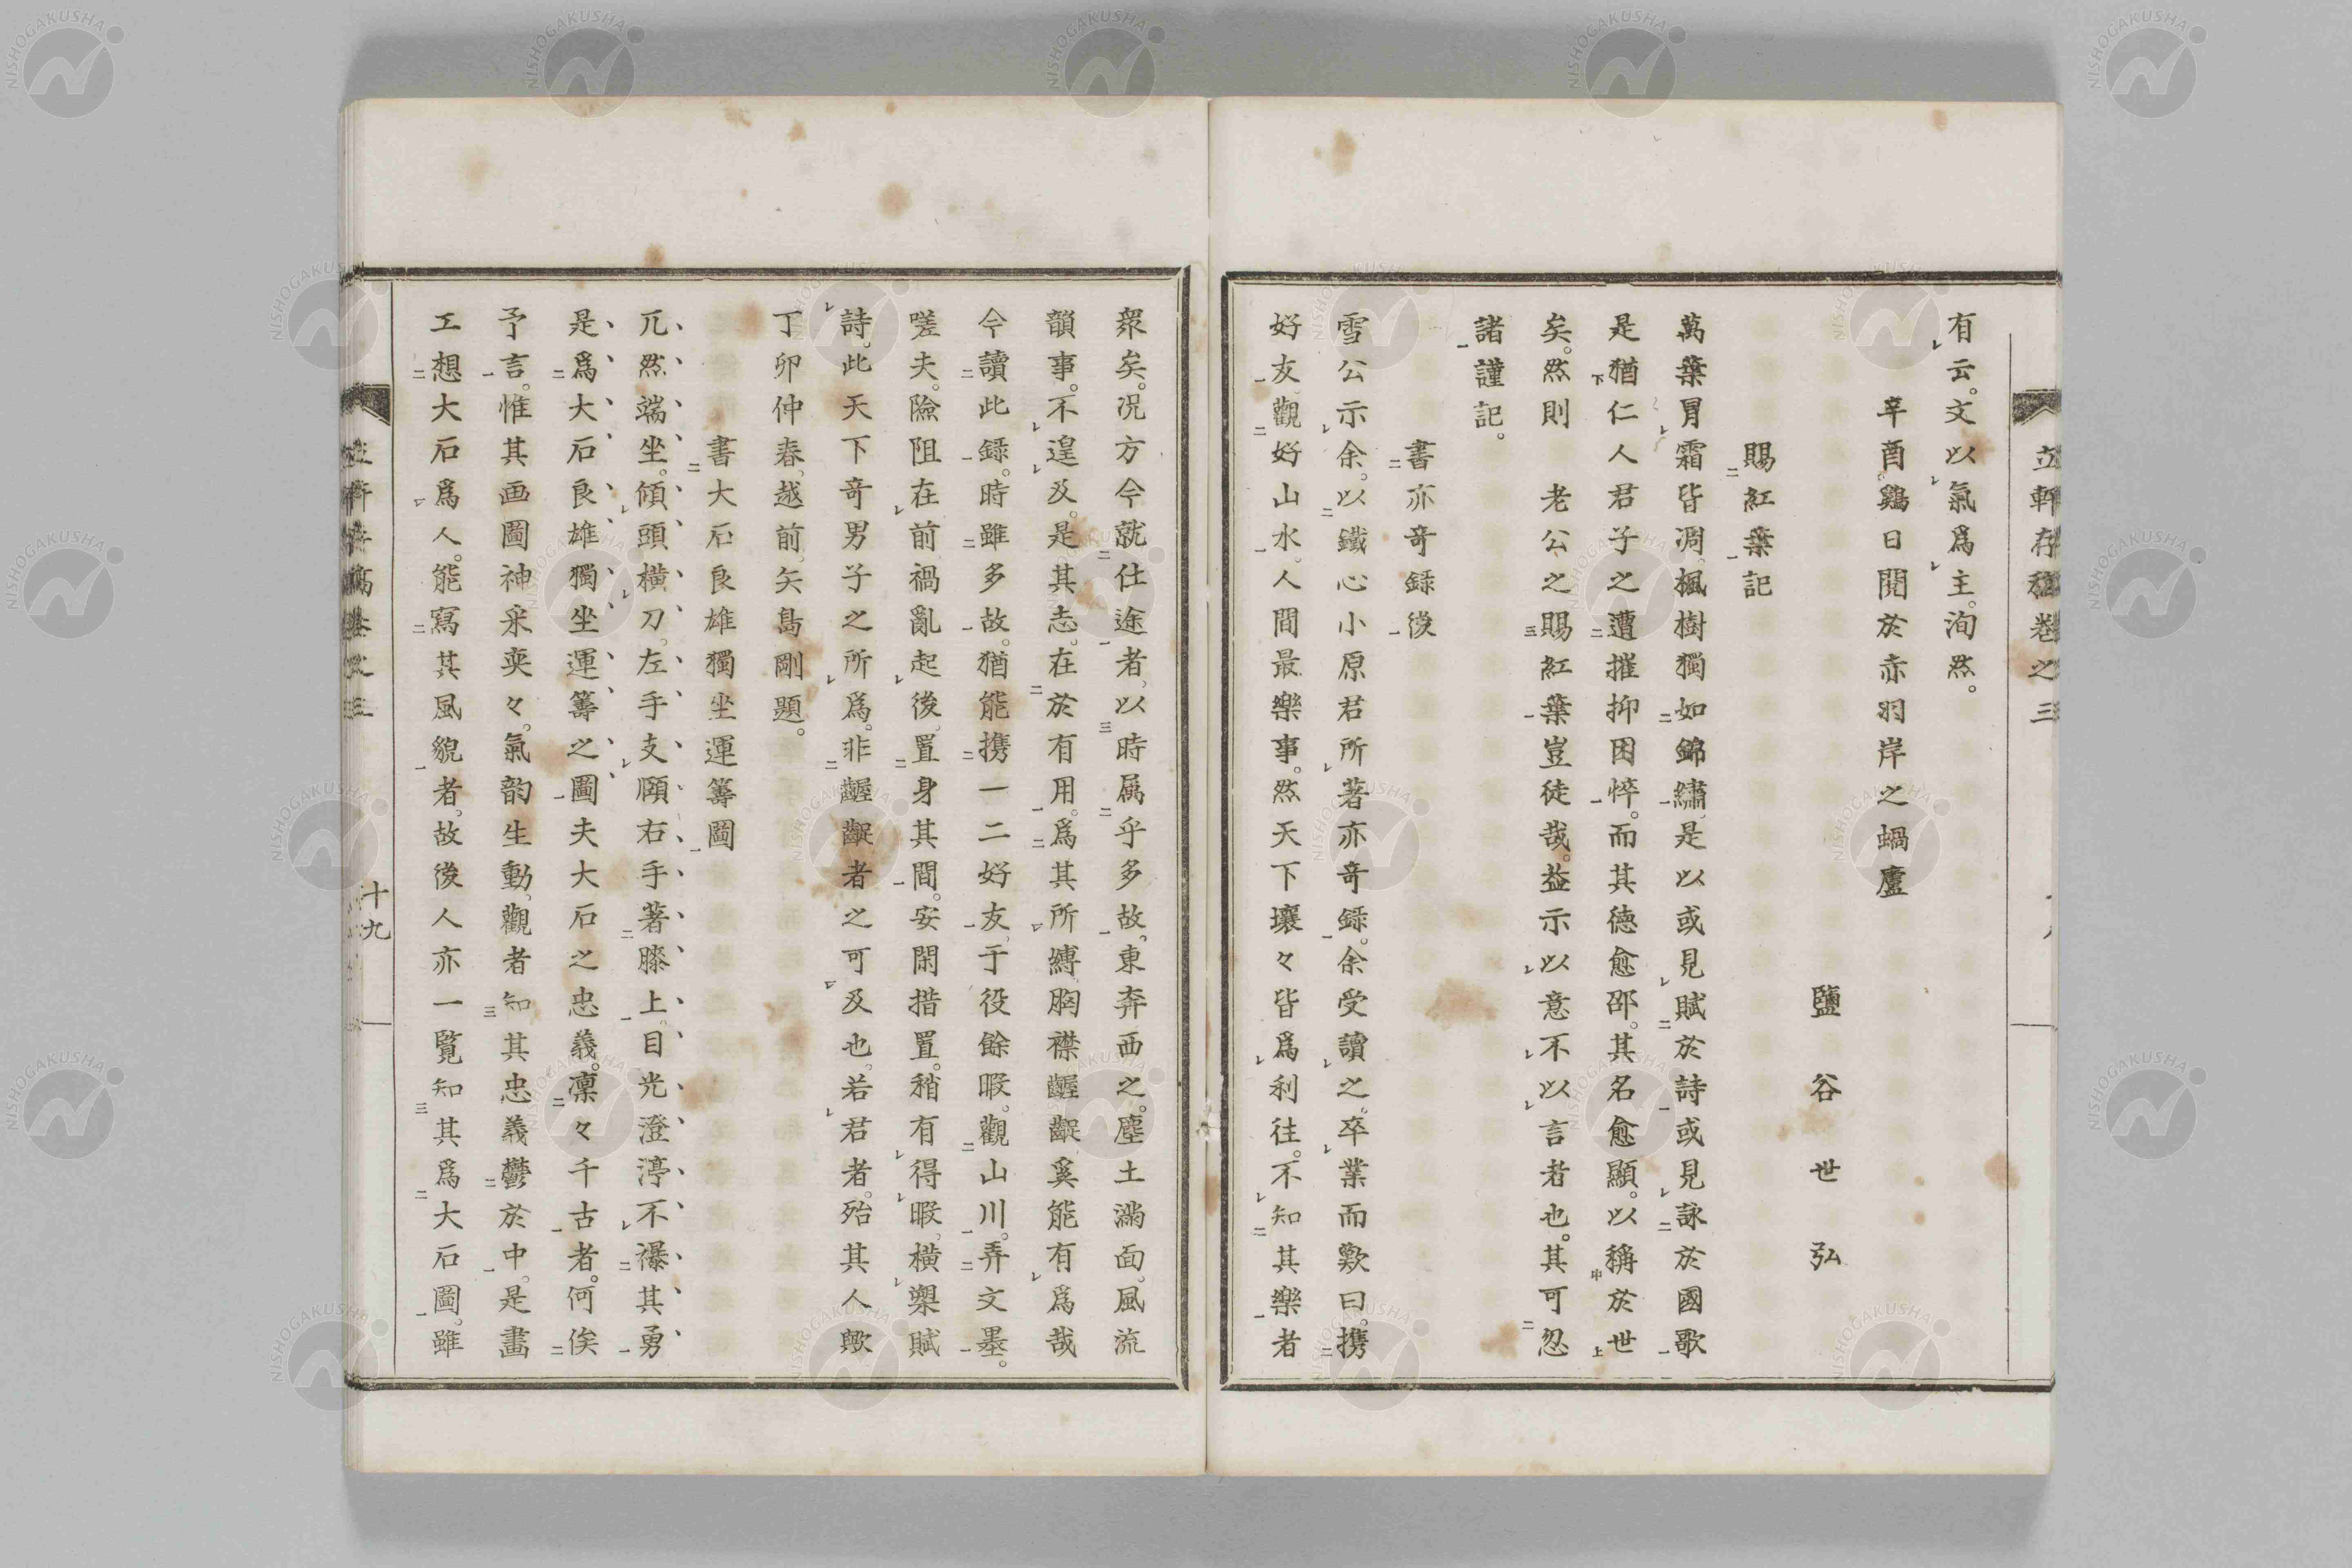 立軒存稿卷之三
有云。文以氣爲主。洵然。
辛酉鷄日閱於赤羽岸之蝸廬
鹽谷世弘
賜紅葉記
萬葉冐霜皆凋。楓樹獨如錦繡。是以或見賦於詩或見詠於國歌
是猶仁人君子之遭摧抑困悴。而其德愈邵。其名愈顯。以稱於世
矣。然則　老公之賜紅葉豈徒哉。益示以意不以言者也。其可忽
諸謹記。
書亦奇録後
雪公示余。以鐵心小原君所著亦奇録。余受讀之。卒業而歎曰。携
好友。觀好山水。人間最樂事。然天下壤々皆爲利往。不知其樂者
衆矣。况方今就仕途者、以時属乎多故。東奔西之。塵土滿面。風流
韻事。不遑及。是其志。在於有用。爲其所縛、胸襟齷齪奚能有爲哉
今讀此録。時雖多故。猶能携一二好友、于役餘暇。觀山川。弄文墨。
嗟夫。險阻在前、禍亂起後、置身其間。安閑措置。稍有得暇、橫槊賦
詩。此天下奇男子之所爲。非齷齪者之可及也。若君者。殆其人歟
丁卯仲春、越前、矢島剛題。
書大石良雄獨坐運籌圖
兀然端坐。傾頭橫刀。左手支頤右手著膝上。目光澄渟不襮其勇
是爲大石良雄獨坐運籌之圖夫大石之忠義。凛々千古者。何俟
予言。惟其画圖神采奕々。氣韵生動、觀者知其忠義鬱於中。是畫
工想大石爲人。能寫其風貌者。故後人亦一覽知其爲大石圖。雖
十九